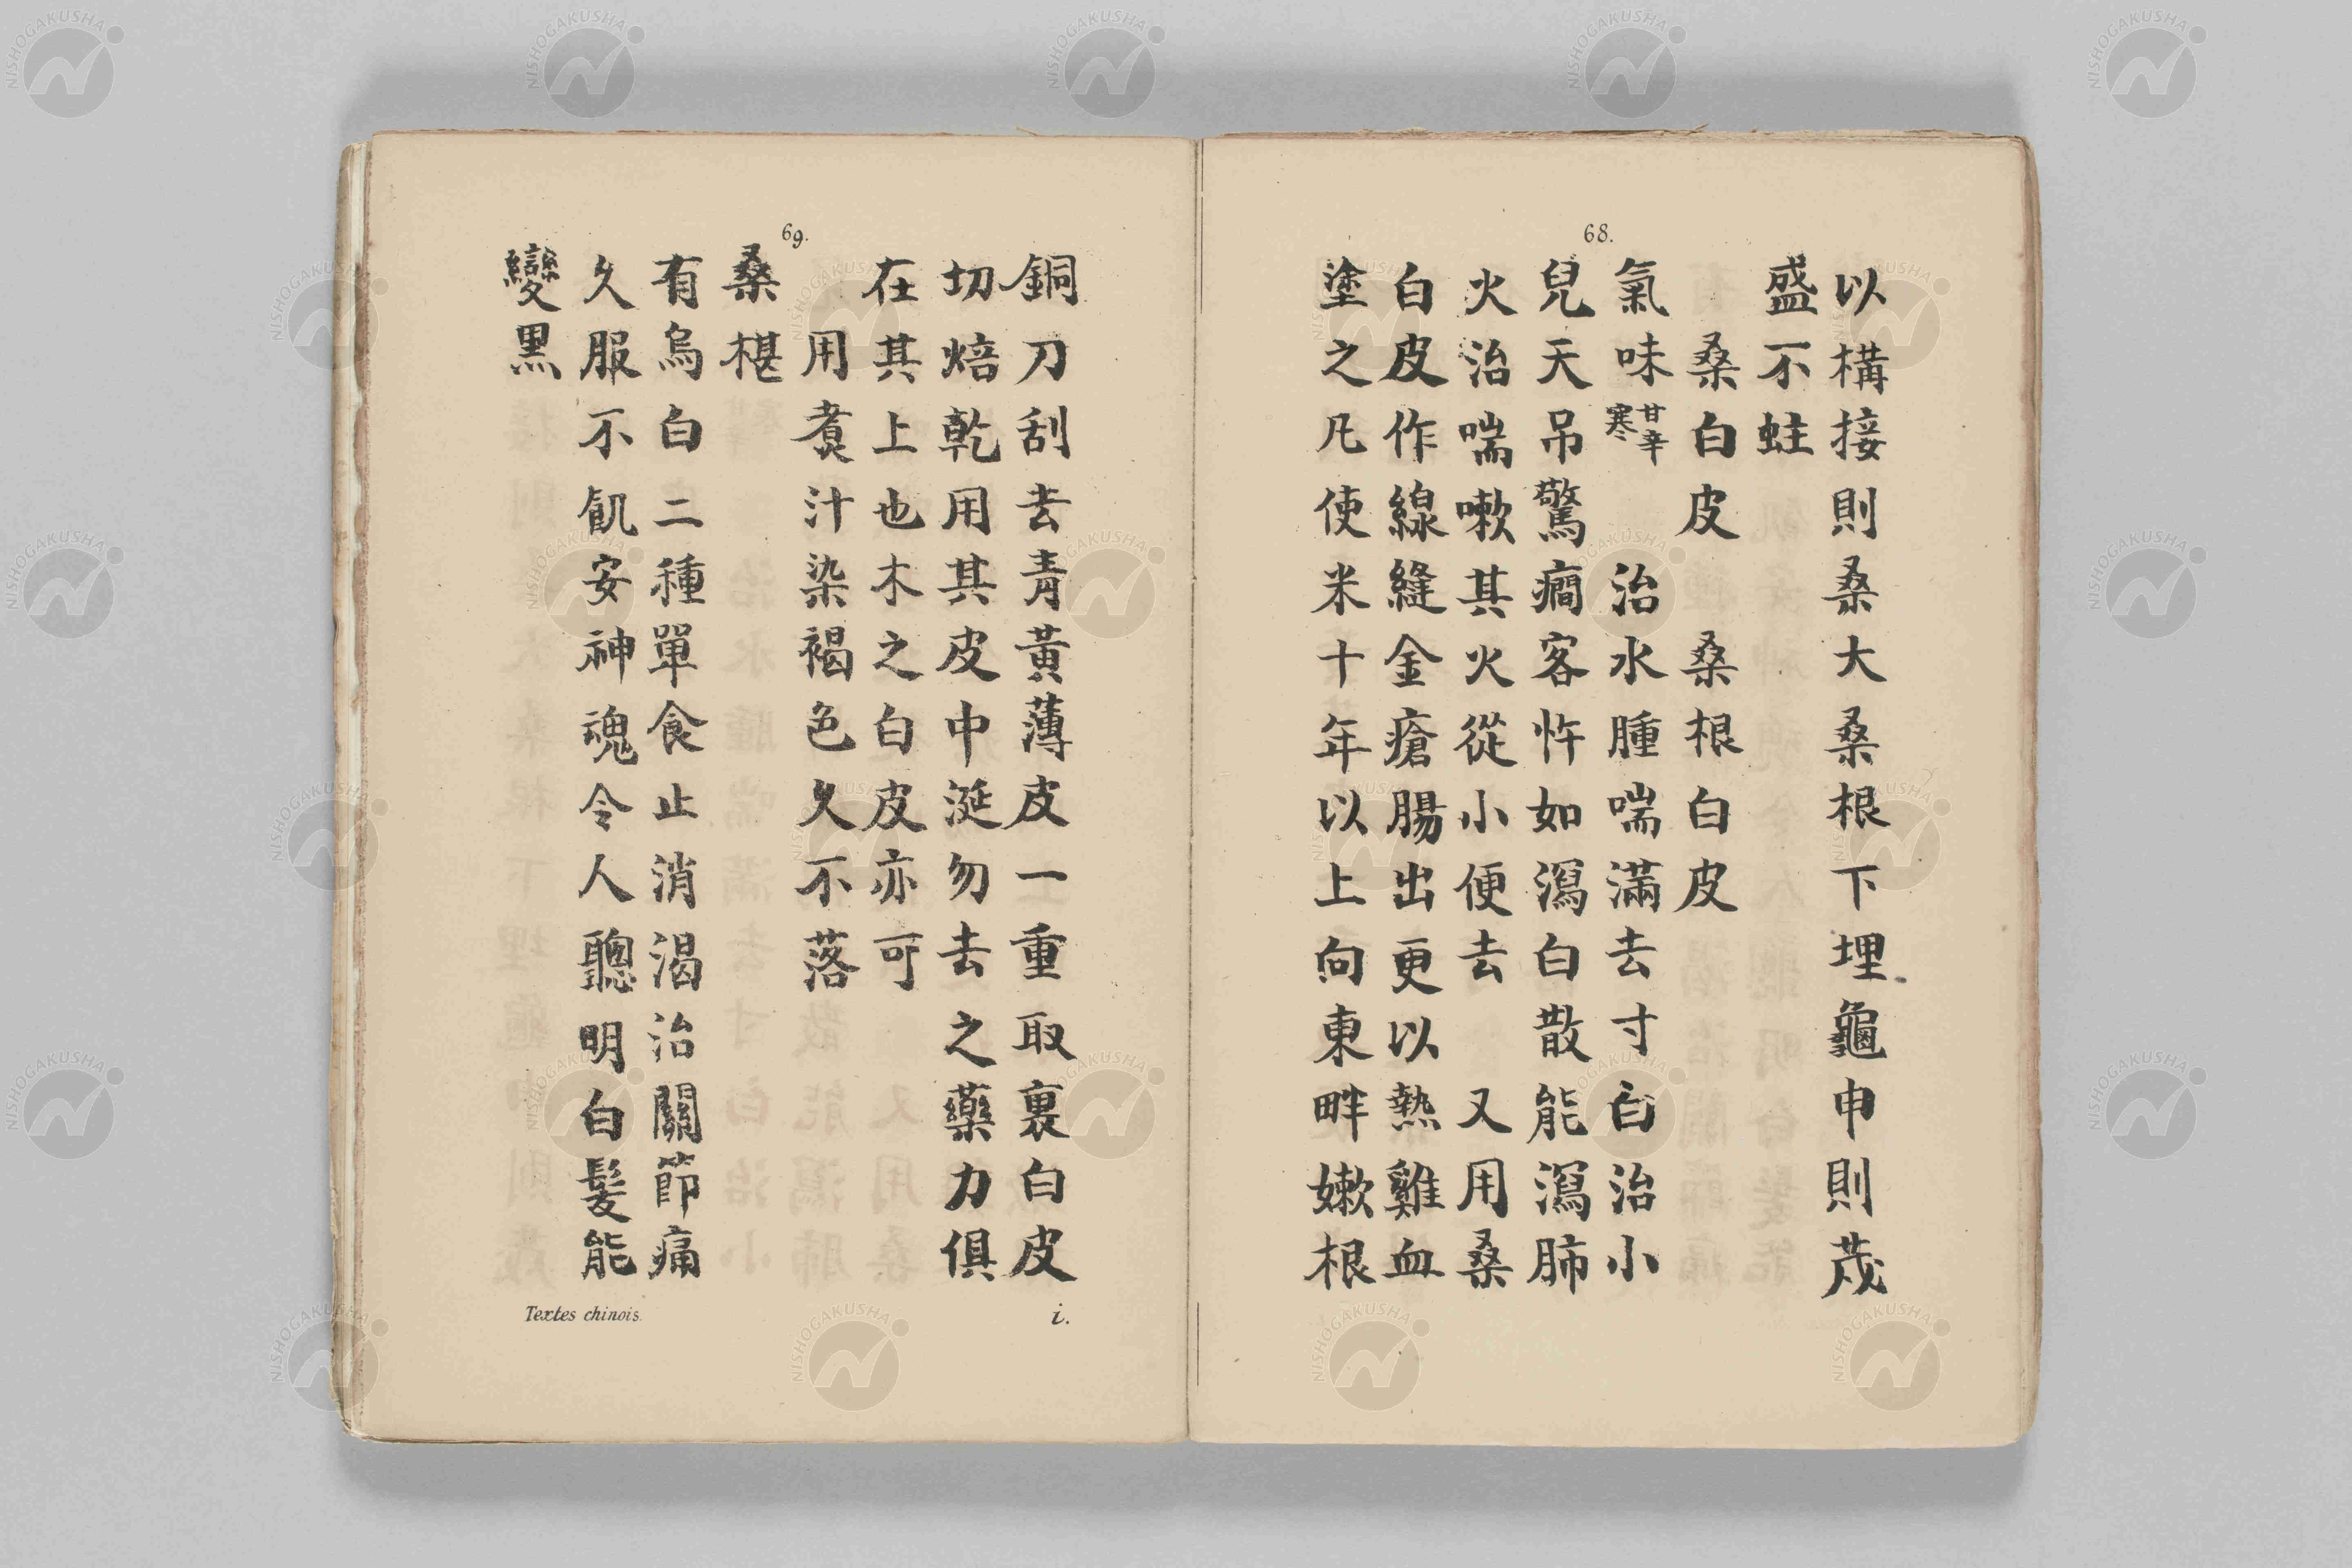 68.
以構接則桑大桑根下埋龜申則茂
盛不蛀
桑白皮 桑根白皮
氣味甘辛寒 治水腫喘滿去寸白治小
兒天吊驚癎客忤如瀉白散能瀉肺
火治喘嗽其火從小便去 又用桑
白皮作線縫金瘡腸出更以熱雞血
塗之凡使米十年以上向東畔嫩根
69.
銅刀刮去青黃薄皮一重取裏白皮
切焙乾用其皮中涎勿去之藥力俱
在其上也木之白皮亦可
用煮汁染褐色久不落
桑椹
有烏白二種單食止消渴治關節痛
久服不飢安神魂令人聰明白髮能
變黑
Textes chinois.
i.
NISHOGAKUSHA